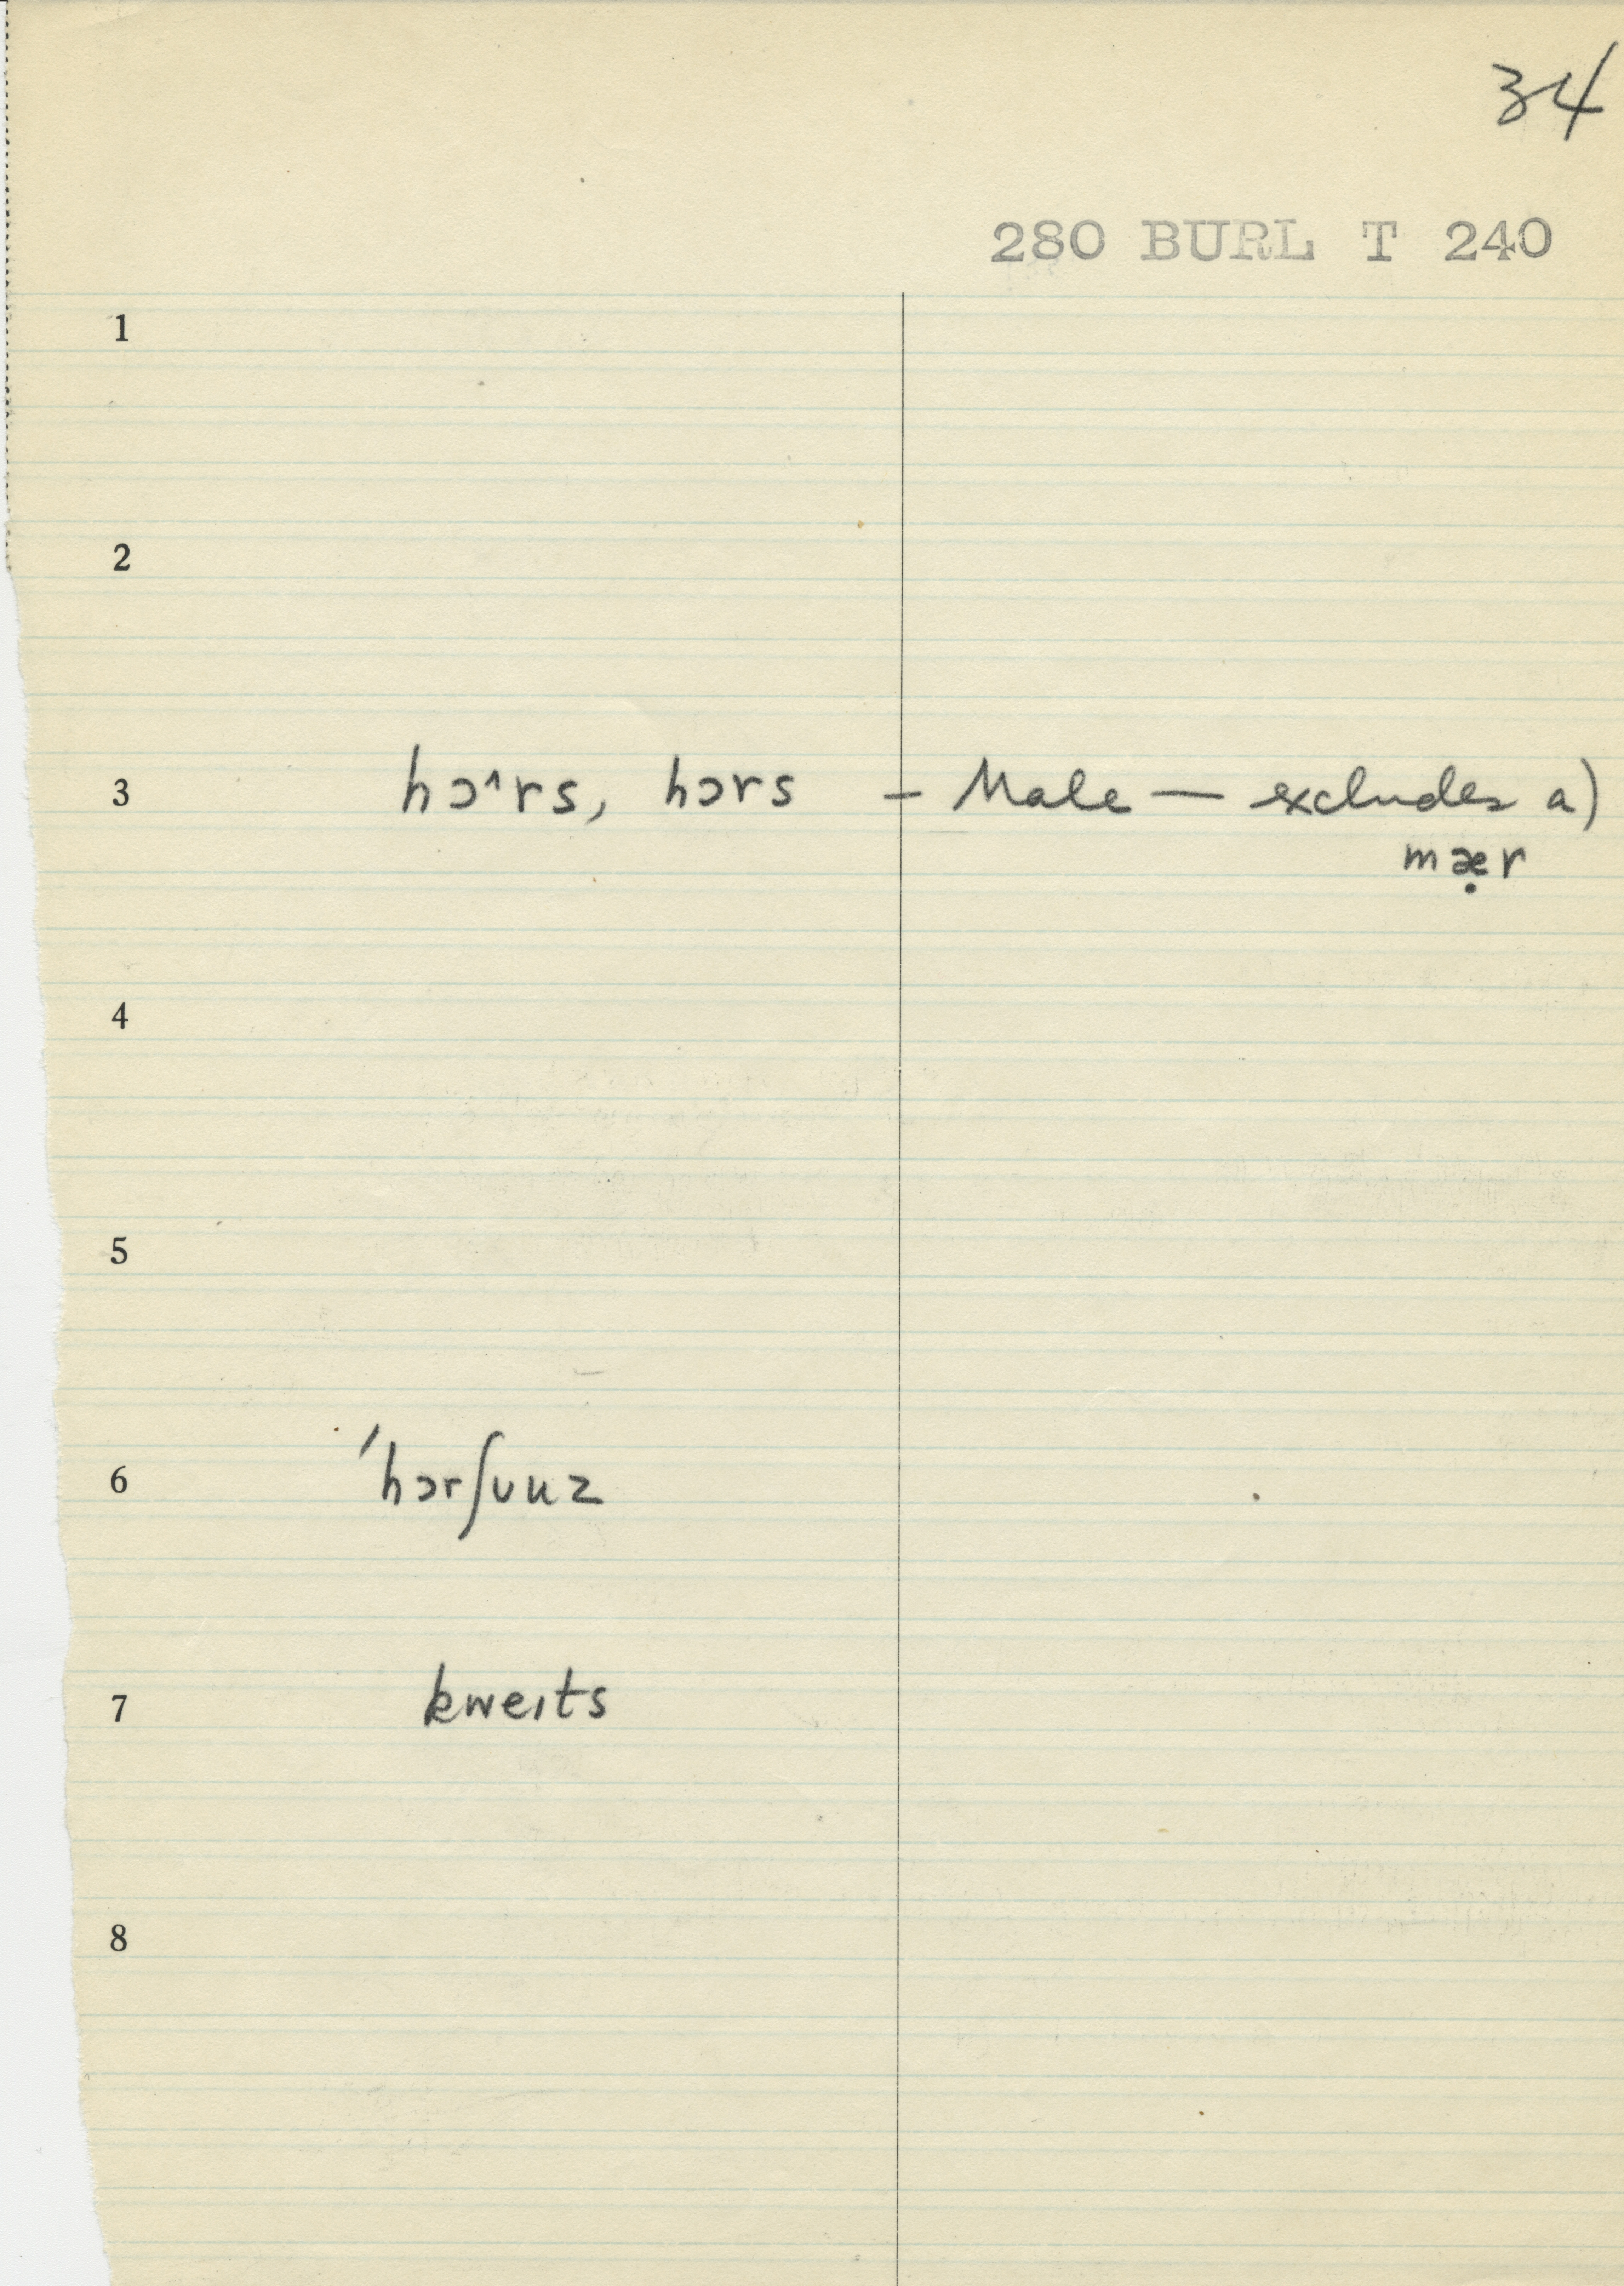 34
280 BURL T 240
1
2
3 hɔ^rs, hɔrs – Male — excludes a)
mæ̣r
4
5
6 ˊhɔrʃuuz
7 kweɪts
8